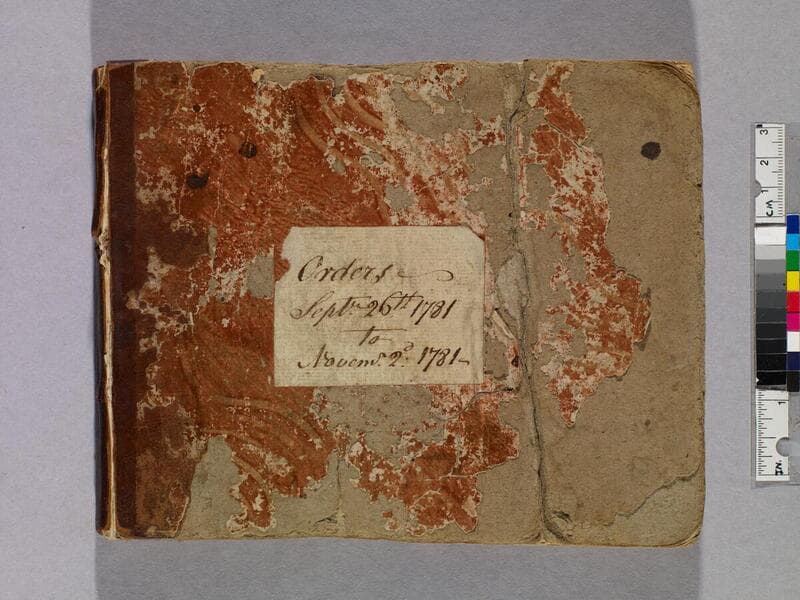 Orders
Septr. 26th 1781
to
Novemr. 2d. 1781
CM 1 2 3
1
IN.